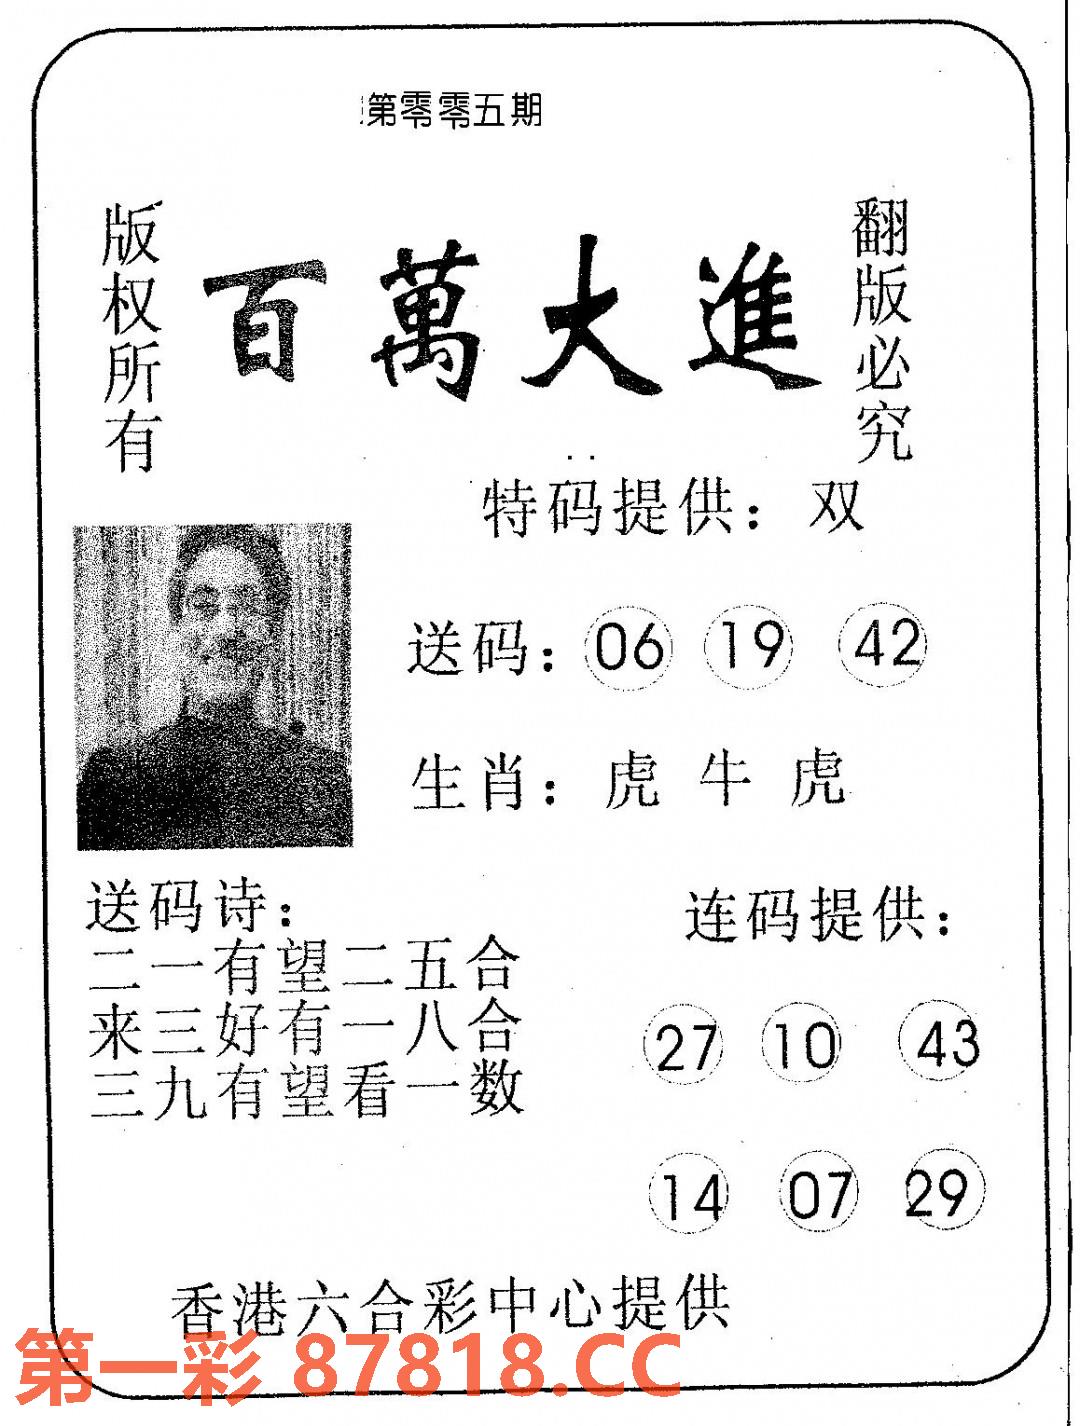 第零零五期
版权所有
百萬大進
翻版必究
特码提供：双
送码：06 19 42
生肖：虎 牛 虎
送码诗：
二一有望二五合
来三好有一八合
三九有望看一数
连码提供：
27 10 43
14 07 29
香港六合彩中心提供
第一彩 87818.CC